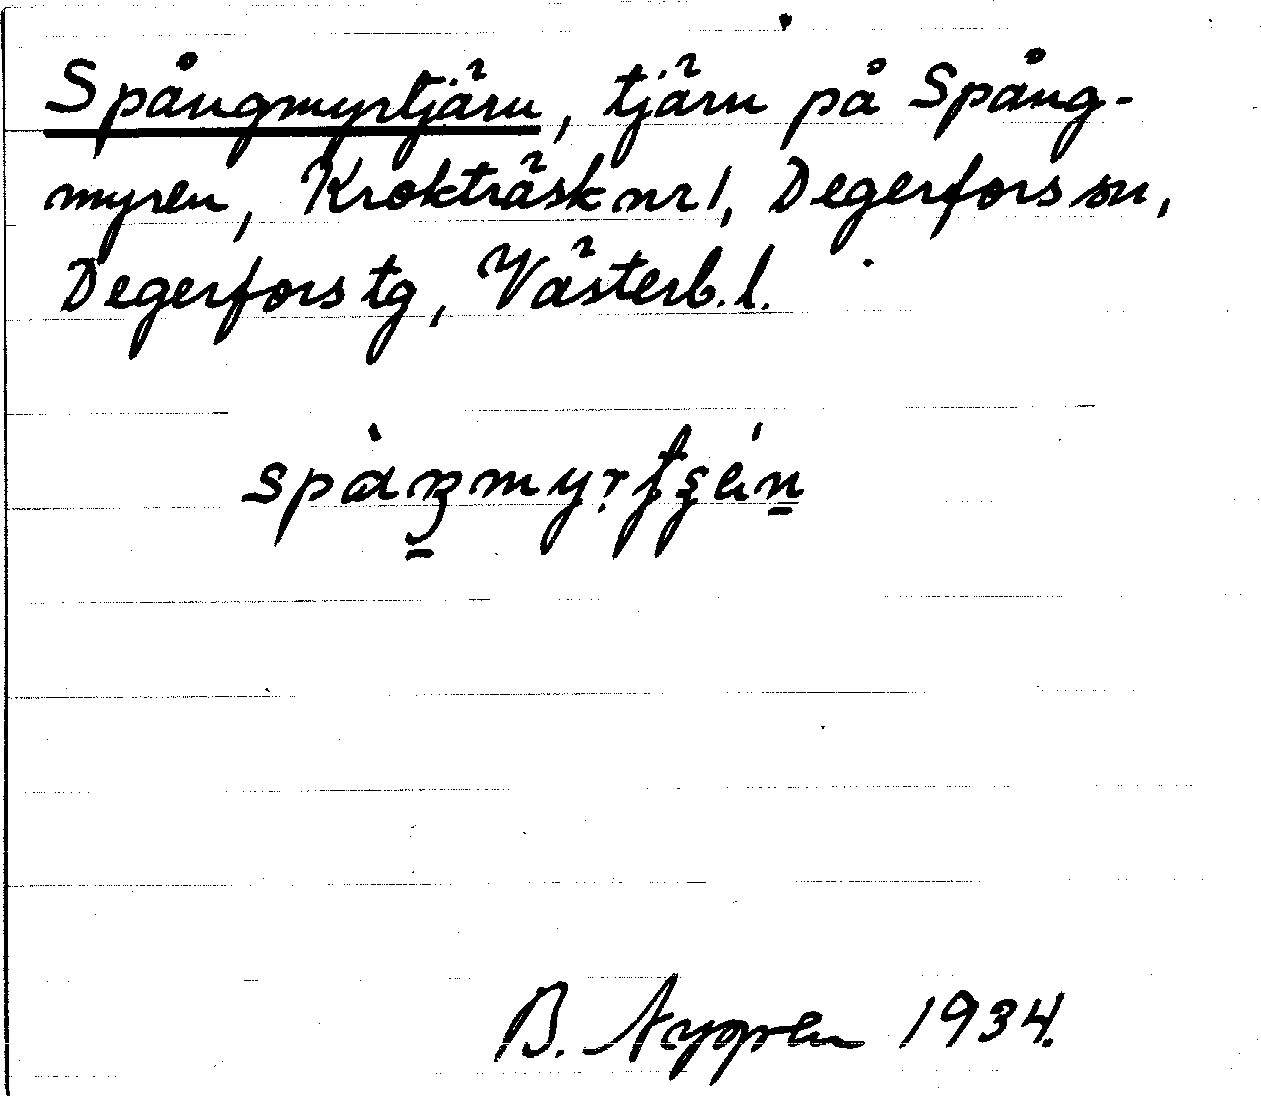 Spångmyrtjärn, tjärn på Spång-
myren, Krokträsk nr 1, Degerfors sn,
Degerfors tg, Västerb. l.
B. Nygren 1934.